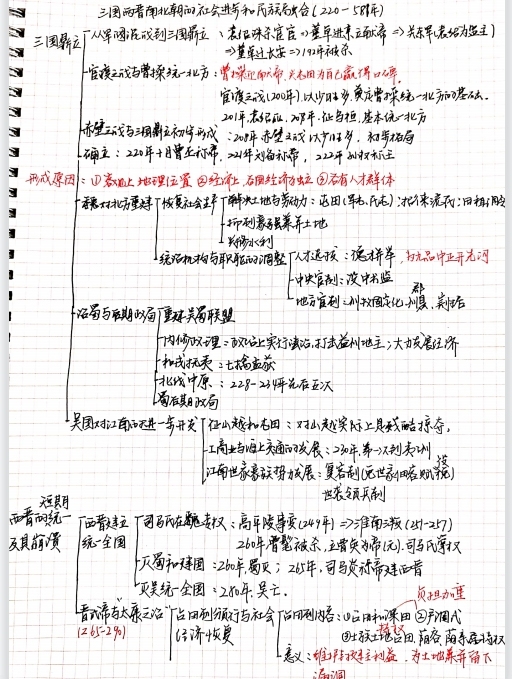 三国两晋南北朝的社会进步和民族融合(220-589年)
三国鼎立
从军阀混战到三国鼎立:袁绍诛宦官⇒董卓进京立献帝⇒关东军(袁绍为盟主)
⇒董卓迁长安⇒192年被杀
官渡之战与曹操统一北方:曹操迎献帝,
官渡之战(200年),以少胜多,奠定曹操统一北方的基础。
基本统一北方
赤壁之战与三国鼎立初步形成:208年赤壁之战以少胜多,初步格局
确立:220年十月曹丕称帝,221年刘备称帝,222年孙权称王
形成原因:①政治上地理位置 ②经济上,右田经济独立 ③各有人才群体
曹魏对北方重建
恢复社会生产
解决土地与劳动力:屯田(军屯、民屯);招徕流民;田租
抑制豪强兼并土地
兴修水利
统治机构与职能的调整
人才选拔:德才并举,为九品中正开先河
中央官制:设中书监
地方官制:州牧
治蜀与后期政局
重建吴蜀联盟
内修政理:政治上实行法治,打击益州地主;大力发展经济
和戎抚夷:七擒孟获
北伐中原:228-234年先后五次
蜀后期政局
吴国对江南的进一步开发
征山越和屯田:对山越实际上是残酷掠夺。
工商业与海上交通的发展:230年,第一次到夷洲
江南世家豪族势力发展:复客制(免世家佃客赋役)
世袭领兵制
短期
西晋的统一及其崩溃
西晋建立统一全国
司马氏在魏专权:高平陵事变(249年)⇒淮南三叛(251-257)
260年曹髦被杀,立曹奂为帝(元),司马氏掌权
灭蜀和建国:260年,蜀灭;265年,司马炎称帝建西晋
灭吴统一全国:280年,吴亡。
晋武帝与太康之治
(265-290)
占田制颁行与社会经济恢复
占田制内容:①占田和课田 ②户调式
负担加重
③士族土地占田,荫客,荫亲属特权
意义:维护地主利益,为土地兼并留下
漏洞